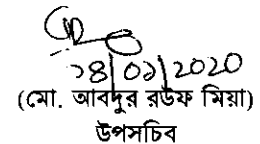 ১৪/০১/2020
(মো. আবদুর রউফ মিয়া)
উপসচিব